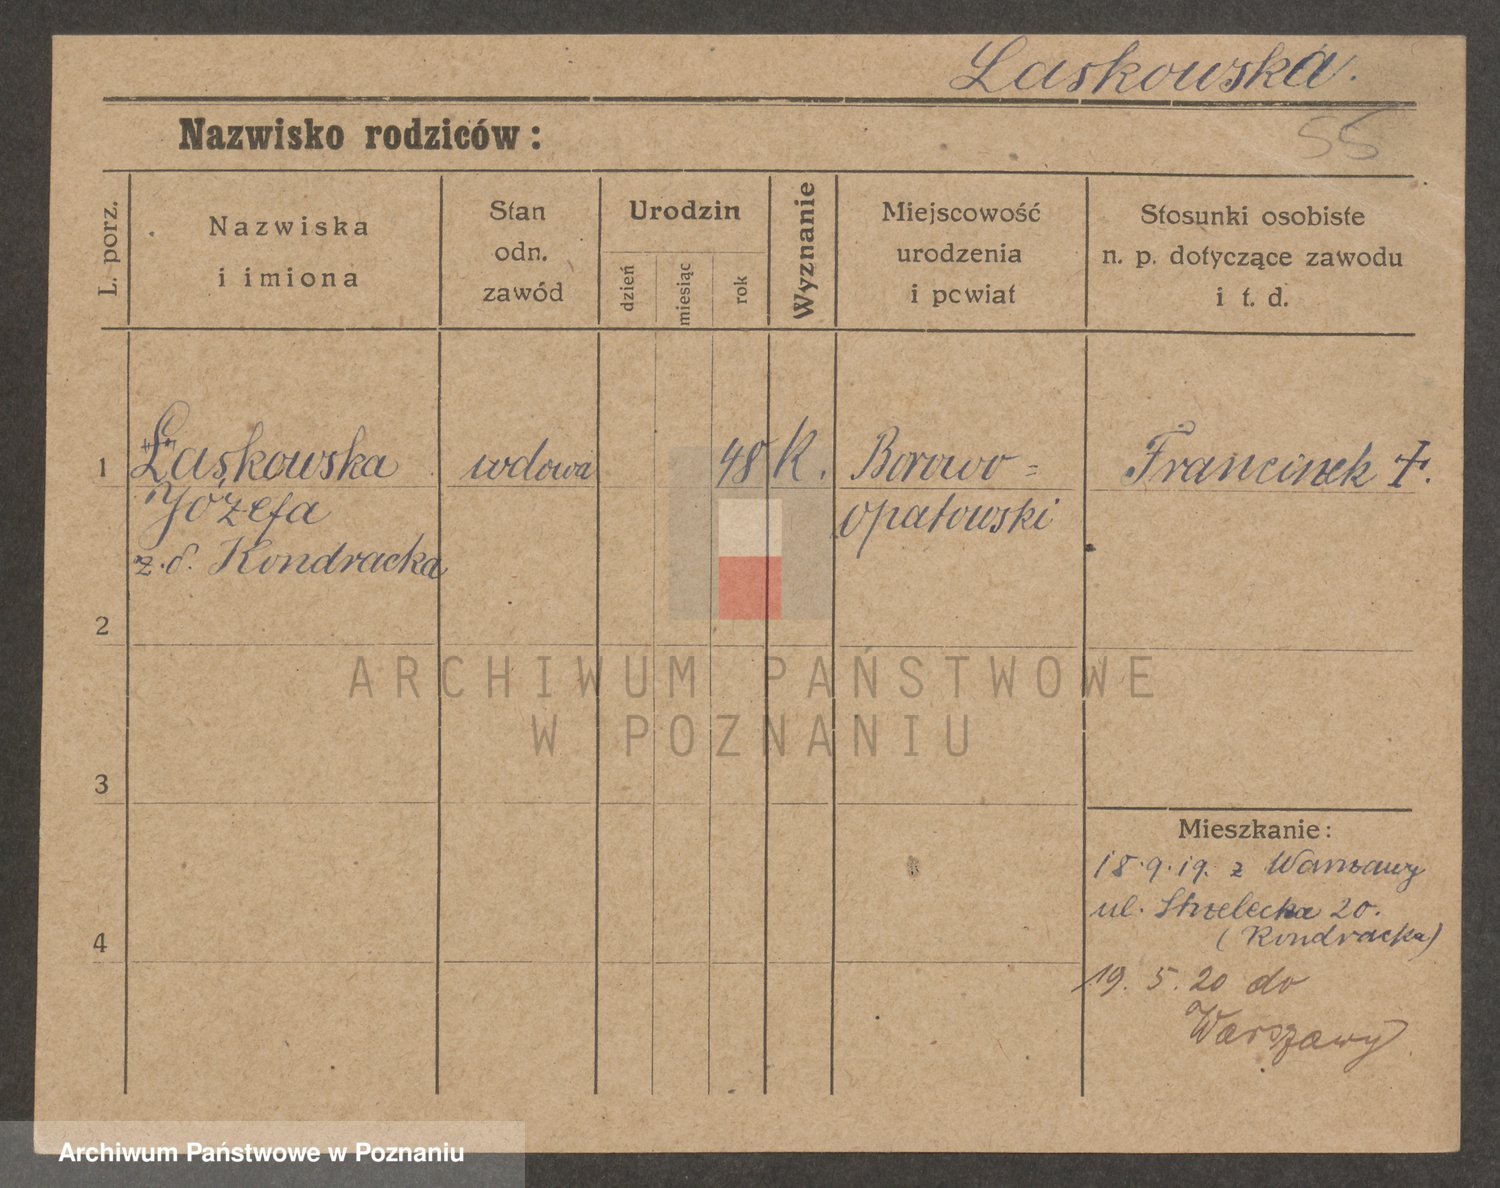 Laskowska.
55
Nazwisko rodziców:
L. porz.
Nazwiska
i imiona
Stan
odn.
zawód
Urodzin
dzień
miesiąc
rok
Wyznanie
Miejscowość
urodzenia
i powiat
Stosunki osobiste
n. p. dotyczące zawodu
i t. d.
1
Łaskowska
Józefa
z.d. Kondracka
wdowa
48
K.
Borowo=
opatowski
Franciszek †.
2
3
4
Mieszkanie:
18.9.19. z Warszawy
ul. Strzelecka 20.
(Kondracka)
19. 5. 20 do
Warszawy
ARCHIWUM PAŃSTWOWE
W POZNANIU
Archiwum Państwowe w Poznaniu